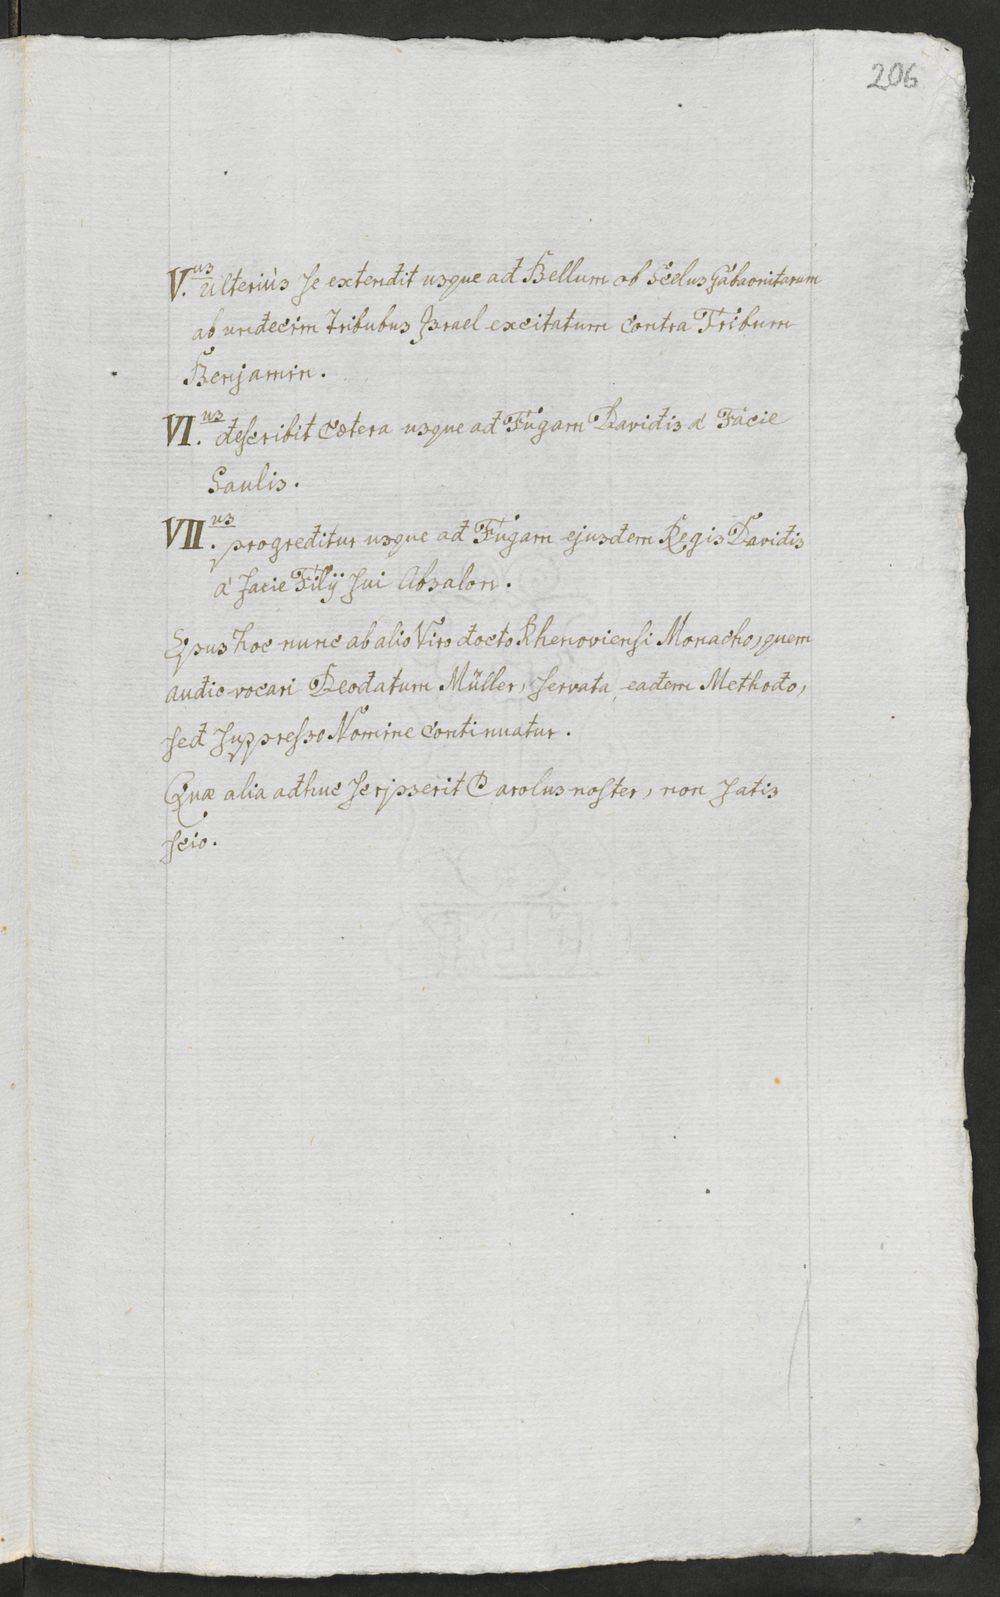 206
V.us ulteriùs se extendit usque ad Bellum ob scelus Gabaonitarum
ab undecim Tribubus Israel excitatum contra Tribum
Benjamin.
VI.us describit cætera usque ad Fugam Davidis à Facie
Saulis.
VII.us progreditur usque ad Fugam ejusdem Regis Davidis
à facie Filij sui Absalon.
Opus hoc nunc ab alio Viro docto Rhenoviensi Monacho, quem
audio vocari Deodatum Müller, servata eadem Methodo,
sed suppresso Nomine continuatur.
Quæ alia adhuc scripserit Carolus noster, non satis
scio.